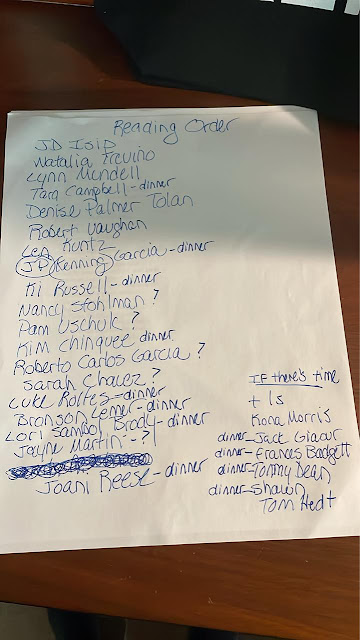 Reading Order
JD Isip
Natalia Treviño
Lynn Mundell
Tara Campbell - dinner
Denise Palmer Tolan
Robert Vaughan
Len Kuntz
JP Kenning Garcia - dinner
Ki Russell - dinner
Nancy Stohlman ?
Pam Uschuk ?
Kim Chinquee dinner
Roberto Carlos Garcia ?
Sarah Chavez ?
Luke Rolfes - dinner
Bronson Lemer - dinner
Lori Sambol Brody - dinner
Jayne Martin - ?
Joani Reese - dinner
If there's time
t ls
Kona Morris
dinner - Jack Giaour
dinner - Frances Badgett
dinner - Tommy Dean
dinner - Shawn
Tom Hedt